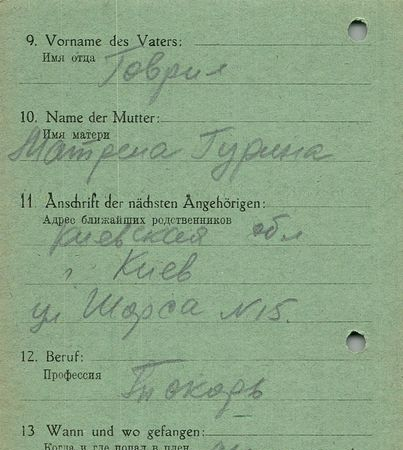 9. Vorname des Vaters:
Имя отца
Говрил
10. Name der Mutter:
Имя матери
Матрена Гурина
11 Anschrift der nächsten Angehörigen:
Адрес ближайших родственников
Киевская обл
г Киев
ул Шорса N 15.
12. Beruf:
Профессия
Токарь
13 Wann und wo gefangen:
Когда и где попал в плен